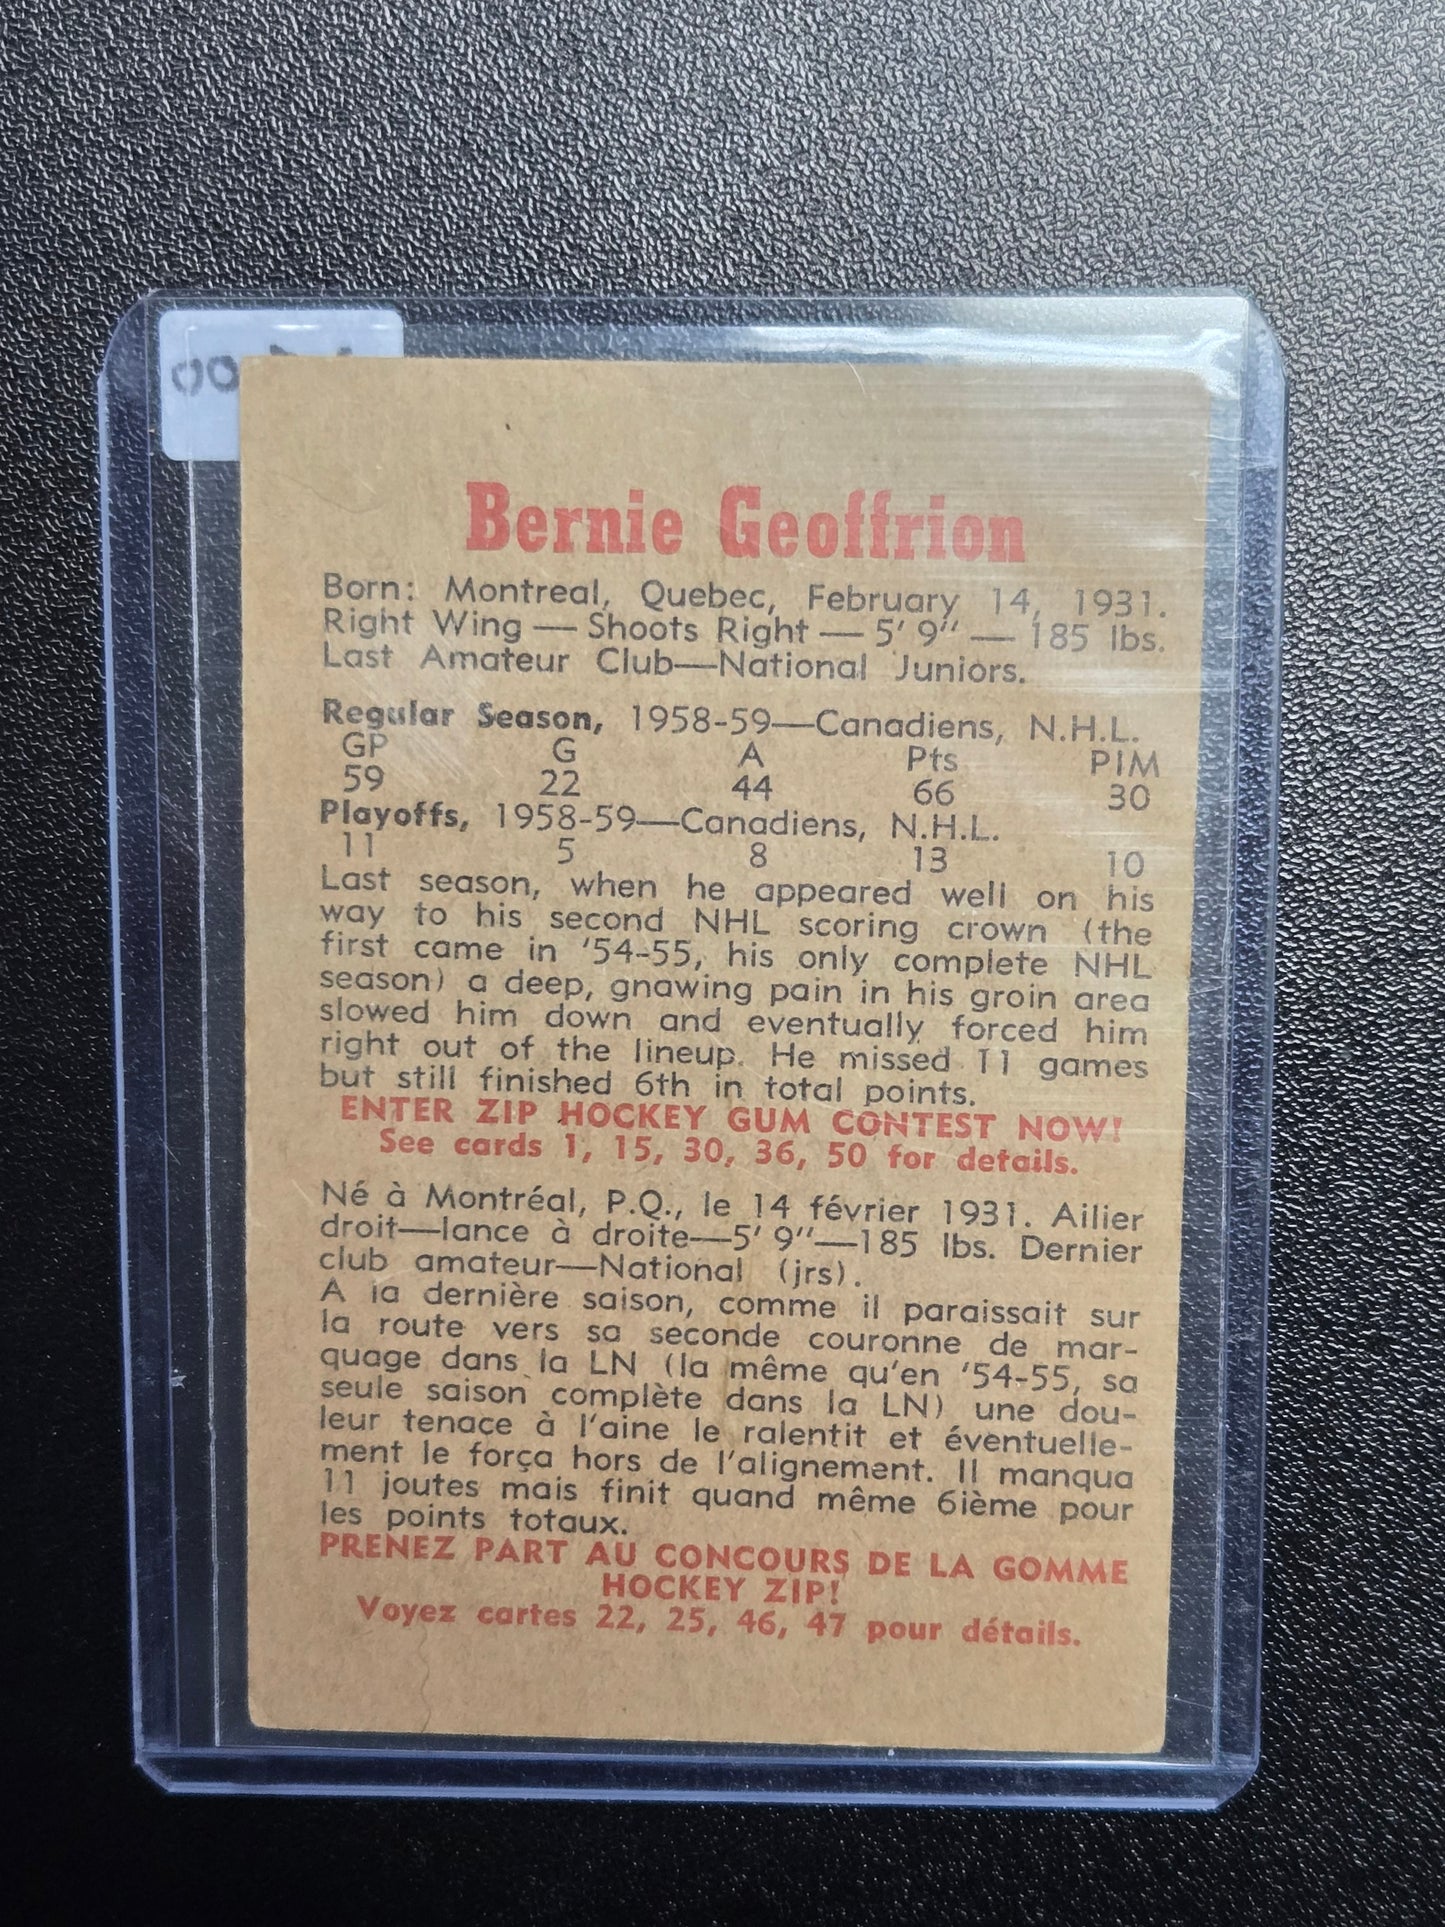 Bernie Geoffrion
Born: Montreal, Quebec, February 14, 1931.
Right Wing — Shoots Right — 5' 9" — 185 lbs.
Last Amateur Club—National Juniors.
Regular Season, 1958-59—Canadiens, N.H.L.
GP G A Pts PIM
59 22 44 66 30
Playoffs, 1958-59—Canadiens, N.H.L.
11 5 8 13 10
Last season, when he appeared well on his
way to his second NHL scoring crown (the
first came in '54-55, his only complete NHL
season) a deep, gnawing pain in his groin area
slowed him down and eventually forced him
right out of the lineup. He missed 11 games
but still finished 6th in total points.
ENTER ZIP HOCKEY GUM CONTEST NOW!
See cards 1, 15, 30, 36, 50 for details.
Né à Montréal, P.Q., le 14 février 1931. Ailier
droit—lance à droite—5' 9"—185 lbs. Dernier
club amateur—National (jrs).
A la dernière saison, comme il paraissait sur
la route vers sa seconde couronne de mar-
quage dans la LN (la même qu'en '54-55, sa
seule saison complète dans la LN) une dou-
leur tenace à l'aine le ralentit et éventuelle-
ment le força hors de l'alignement. Il manqua
11 joutes mais finit quand même 6ième pour
les points totaux.
PRENEZ PART AU CONCOURS DE LA GOMME
HOCKEY ZIP!
Voyez cartes 22, 25, 46, 47 pour détails.